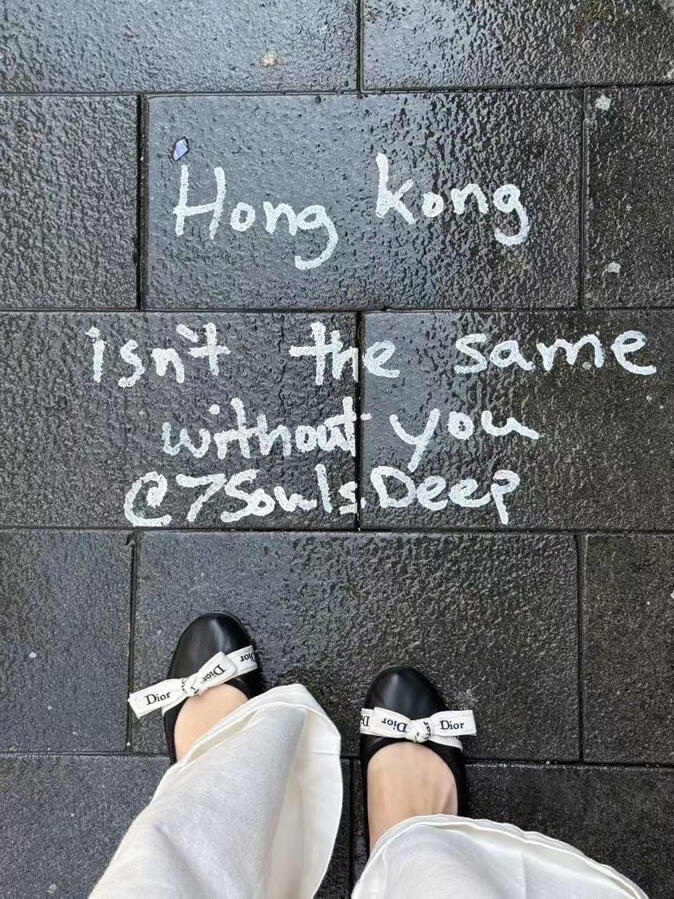 Hong kong
isn't the same
without you
@7Souls.Deep
Dior Dior Dior
Dior Dior Dior